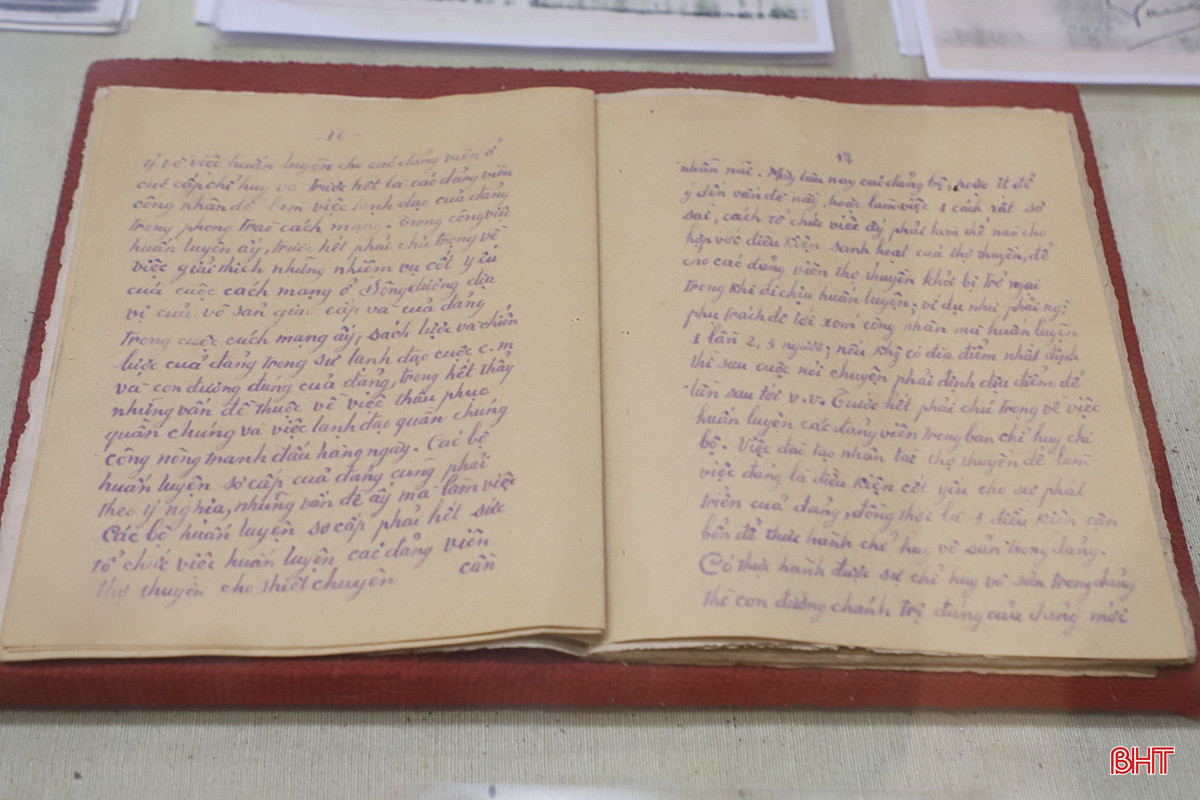 16
ý về việc huấn luyện cho các đảng viên ở
các cấp chỉ huy và trước hết là các đảng viên
công nhân để làm việc lãnh đạo của đảng
trong phong trào cách mạng. Trong công việc
huấn luyện ấy, trước hết phải chú trọng về
việc giải thích những nhiệm vụ cốt yếu
của cuộc cách mạng ở Đông dương địa
vị của vô sản giai cấp và của đảng
trong cuộc cách mạng ấy, sách lược và chiến
lược của đảng trong sự lãnh đạo cuộc c.m
và con đường đúng của đảng, trong hết thảy
những vấn đề thuộc về việc thâu phục
quần chúng và việc lãnh đạo quần chúng
công nông tranh đấu hàng ngày. Các bộ
huấn luyện sơ cấp của đảng cũng phải
theo ý nghĩa, những vấn đề ấy mà làm việc
Các bộ huấn luyện sơ cấp phải hết sức
tổ chức việc huấn luyện các đảng viên
thợ thuyền cho thiệt chuyên cần
17
nhẫn nại. lâu nay các đảng bộ, hoặc ít để
ý đến vấn đề này, hoặc làm việc 1 cách rất sơ
sài, cách tổ chức việc ấy phải làm thế nào cho
hợp với điều kiện sanh hoạt của thợ thuyền, để
cho các đảng viên thợ thuyền khỏi bị trở ngại
trong khi đi chịu huấn luyện, ví dụ như phải ng:
phụ trách để tới xóm công nhân mà huấn luyện
1 lần 2, 3 người, nếu khg có địa điểm nhất định
thì sau cuộc nói chuyện phải định địa điểm để
lần sau tới v.v. Trước hết phải chú trọng về việc
huấn luyện các đảng viên trong ban chỉ huy chi
bộ. Việc đào tạo nhân tài thợ thuyền để làm
việc đảng là điều kiện cốt yếu cho sự phát
triển của đảng, đồng thời là 1 điều kiện căn
bổn để thực hành chỉ huy vô sản trong đảng.
Có thực hành được sự chỉ huy vô sản trong đảng
thì con đường chánh trị đúng của đảng mới
BHT